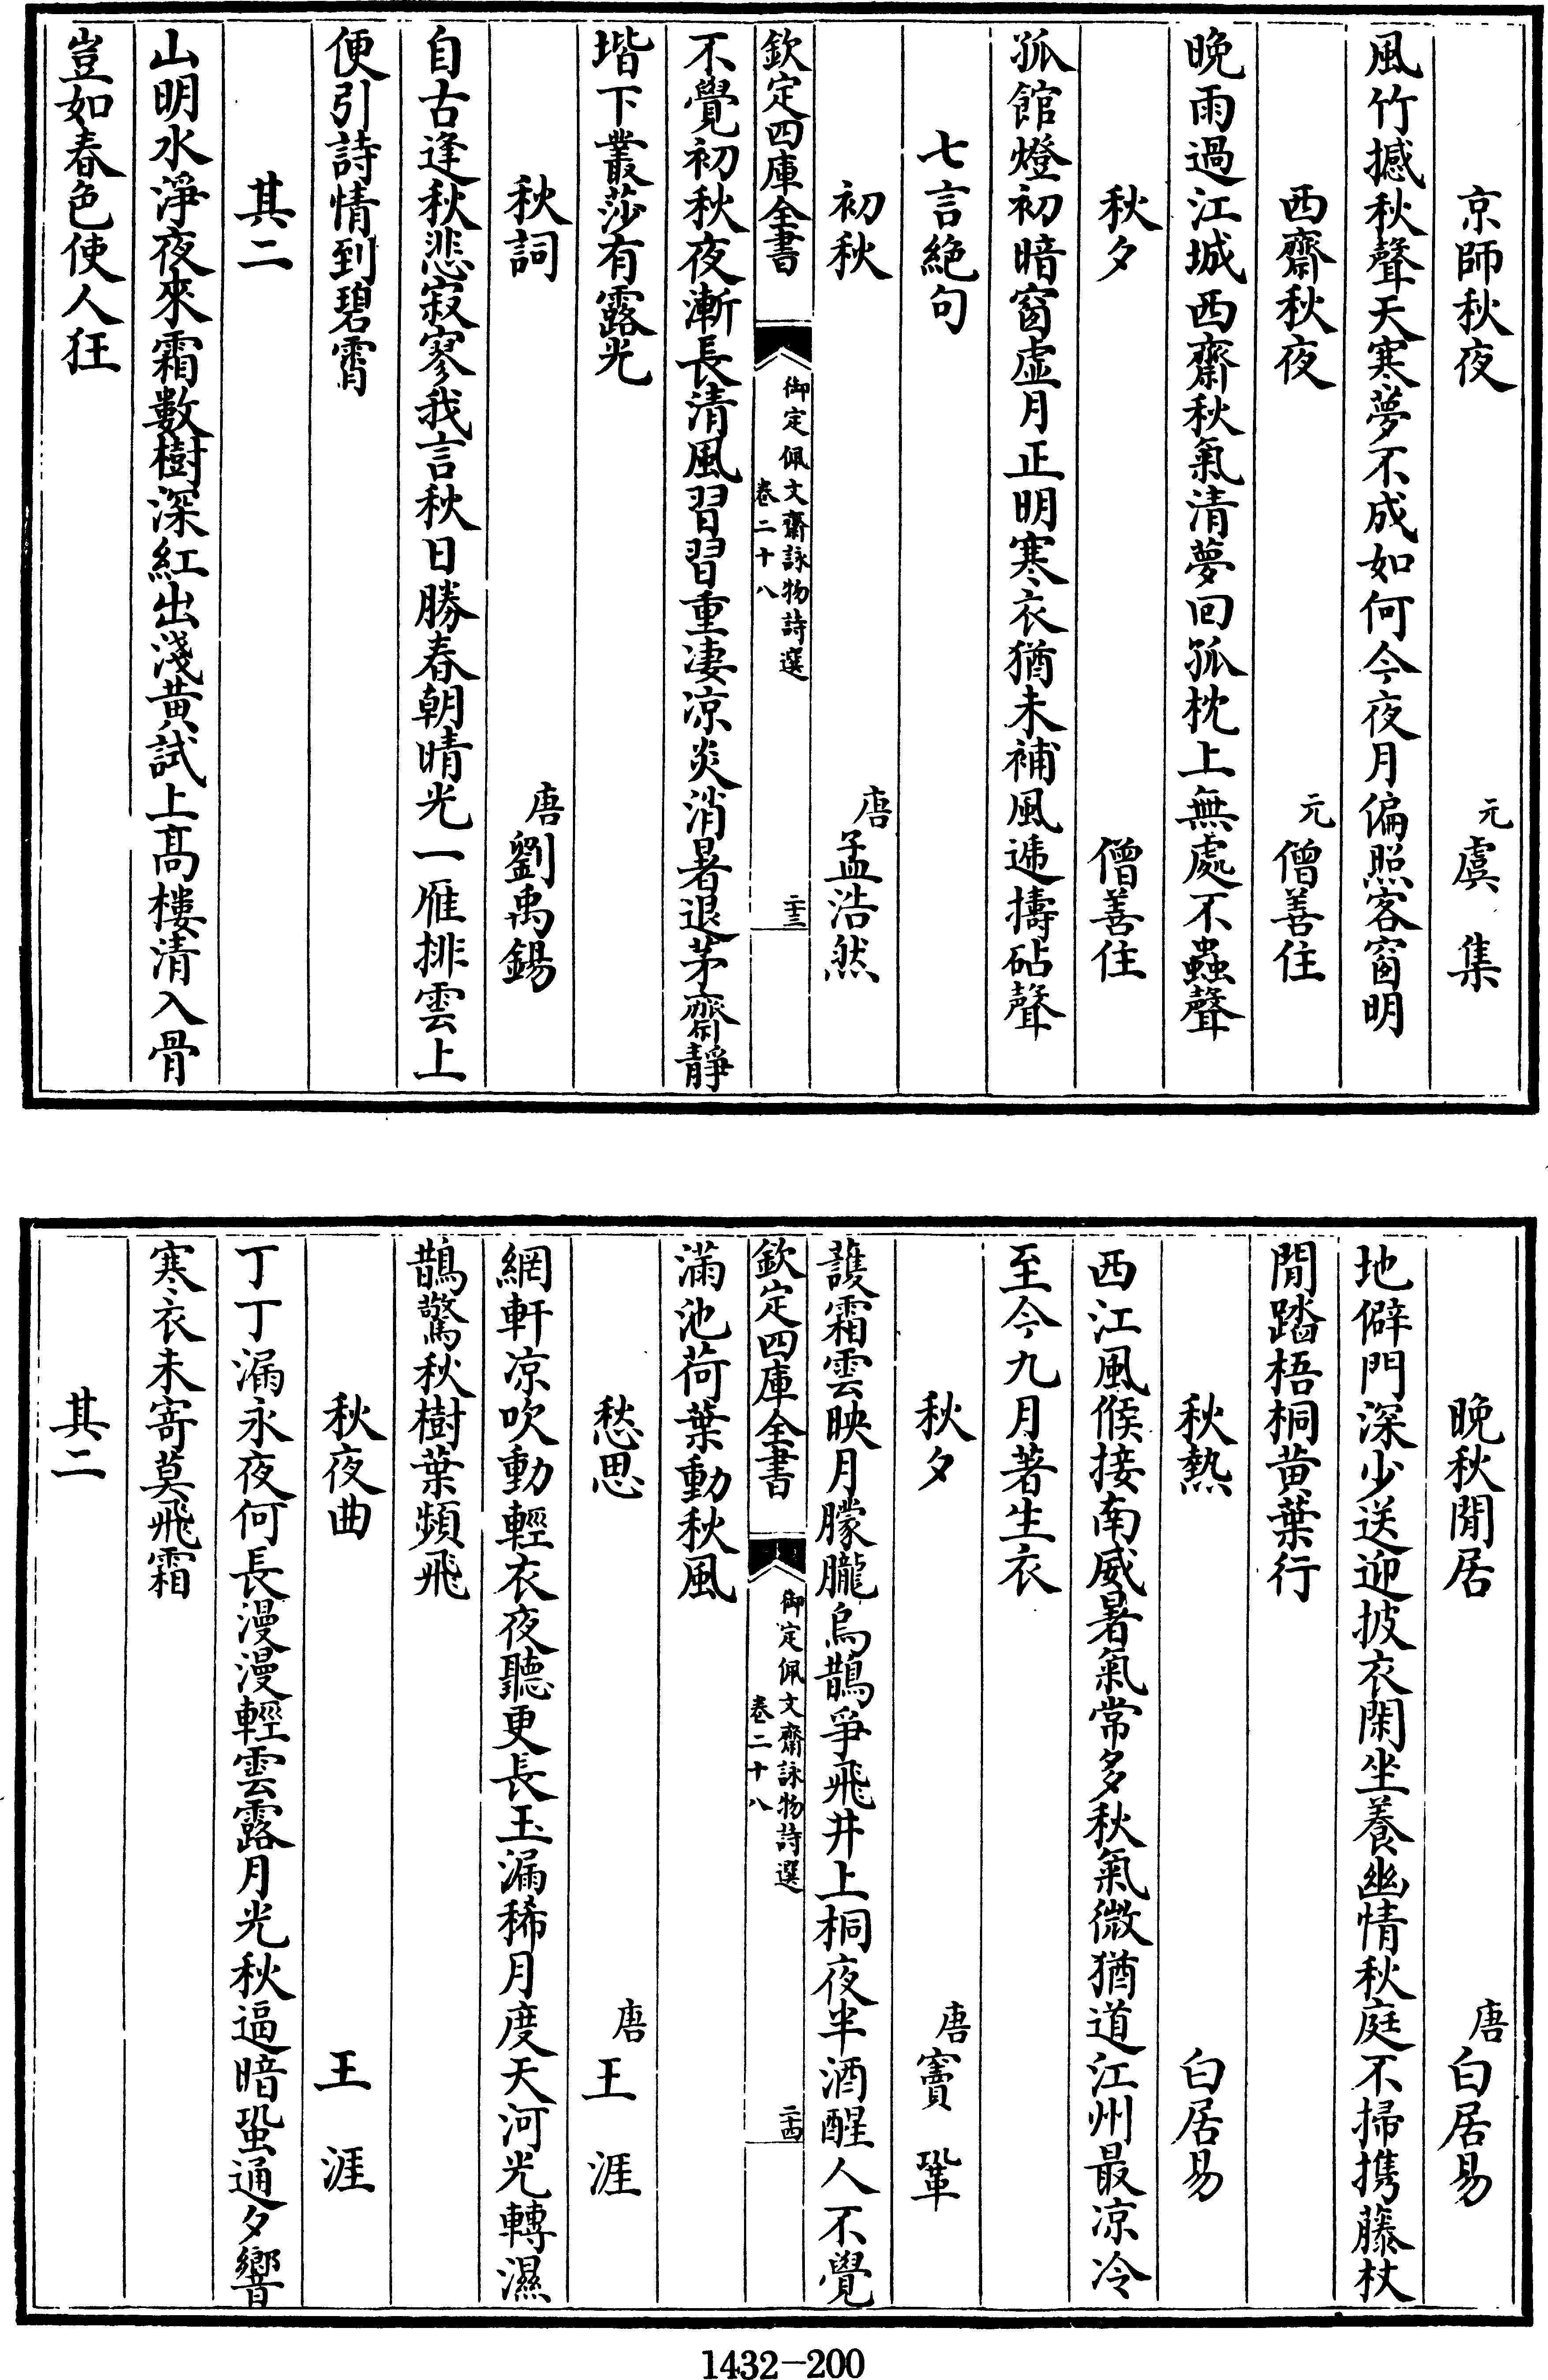 京師秋夜 元虞集
風竹撼秋聲天寒夢不成如何今夜月偏照客窗明
西齋秋夜 元僧善住
晚雨過江城西齋秋氣清夢回孤枕上無處不蟲聲
秋夕 僧善住
孤館燈初暗窗虚月正明寒衣猶未補風遞擣砧聲
七言絕句
初秋 唐孟浩然
欽定四庫全書 御定佩文齋詠物詩選 卷二十八 二十三
不覺初秋夜漸長清風習習重凄凉炎消暑退茅齋靜
堦下叢莎有露光
秋詞 唐劉禹錫
自古逢秋悲寂寥我言秋日勝春朝晴光一雁排雲上
便引詩情到碧霄
其二
山明水淨夜來霜數樹深紅出淺黄試上髙樓清入骨
豈如春色使人狂
晚秋閒居 唐白居易
地僻門深少送迎披衣閑坐養幽情秋庭不掃携藤杖
閒踏梧桐黄葉行
秋熱 白居易
西江風候接南威暑氣常多秋氣微猶道江州最凉冷
至今九月著生衣
秋夕 唐竇鞏
護霜雲映月朦朧烏鵲爭飛井上桐夜半酒醒人不覺
欽定四庫全書 御定佩文齋詠物詩選 卷二十八 二十四
滿池荷葉動秋風
愁思 唐王涯
網軒凉吹動輕衣夜聽更長玉漏稀月度天河光轉濕
鵲驚秋樹葉頻飛
秋夜曲 王涯
丁丁漏永夜何長漫漫輕雲露月光秋逼暗蛩通夕響
寒衣未寄莫飛霜
其二
1432-200